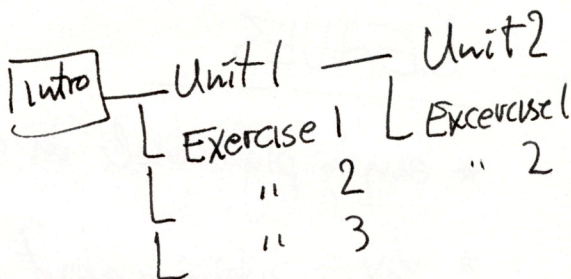 Intro Unit 1 Unit 2
Exercise 1 Excercise 1
" 2 " 2
" 3